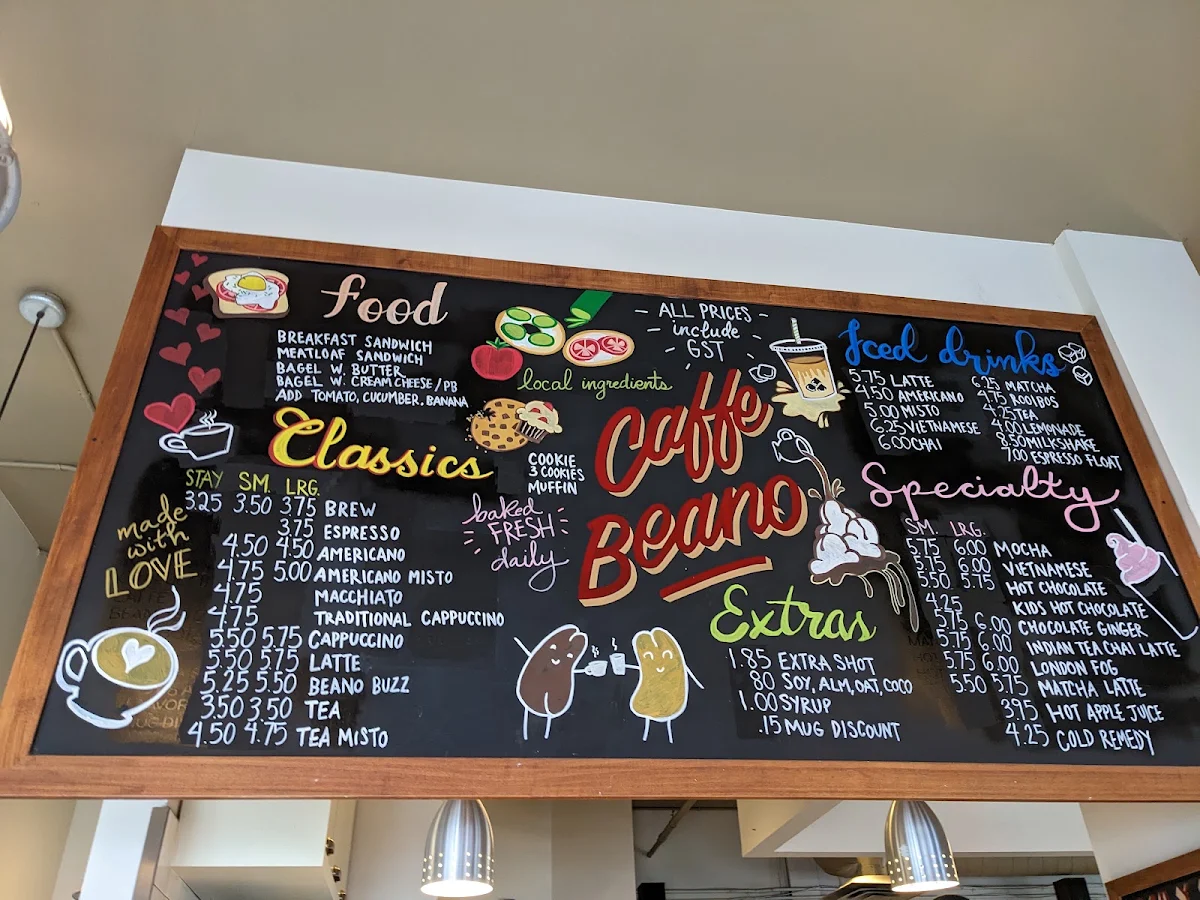 food
BREAKFAST SANDWICH
MEATLOAF SANDWICH
BAGEL W. BUTTER
BAGEL W. CREAM CHEESE/PB
ADD TOMATO, CUCUMBER, BANANA
local ingredients
- ALL PRICES -
- include -
- GST -
Classics
STAY SM. LRG.
3.25 3.50 3.75 BREW
3.75 ESPRESSO
4.50 4.50 AMERICANO
4.75 5.00 AMERICANO MISTO
4.75 MACCHIATO
4.75 TRADITIONAL CAPPUCCINO
5.50 5.75 CAPPUCCINO
5.50 5.75 LATTE
5.25 5.50 BEANO BUZZ
3.50 3.50 TEA
4.50 4.75 TEA MISTO
made
with
LOVE
COOKIE
3 COOKIES
MUFFIN
baked
FRESH
daily
Caffe
Beano
Extras
1.85 EXTRA SHOT
.80 SOY, ALM, OAT, COCO
1.00 SYRUP
.15 MUG DISCOUNT
Iced drinks
5.75 LATTE
4.50 AMERICANO
5.00 MISTO
6.25 VIETNAMESE
6.00 CHAI
6.25 MATCHA
4.75 ROOIBOS
4.25 TEA
4.00 LEMONADE
8.50 MILKSHAKE
7.00 ESPRESSO FLOAT
Specialty
SM. LRG.
5.75 6.00 MOCHA
5.75 6.00 VIETNAMESE
5.50 5.75 HOT CHOCOLATE
4.25 KIDS HOT CHOCOLATE
5.75 6.00 CHOCOLATE GINGER
5.75 6.00 INDIAN TEA CHAI LATTE
5.75 6.00 LONDON FOG
5.50 5.75 MATCHA LATTE
3.95 HOT APPLE JUICE
4.25 COLD REMEDY